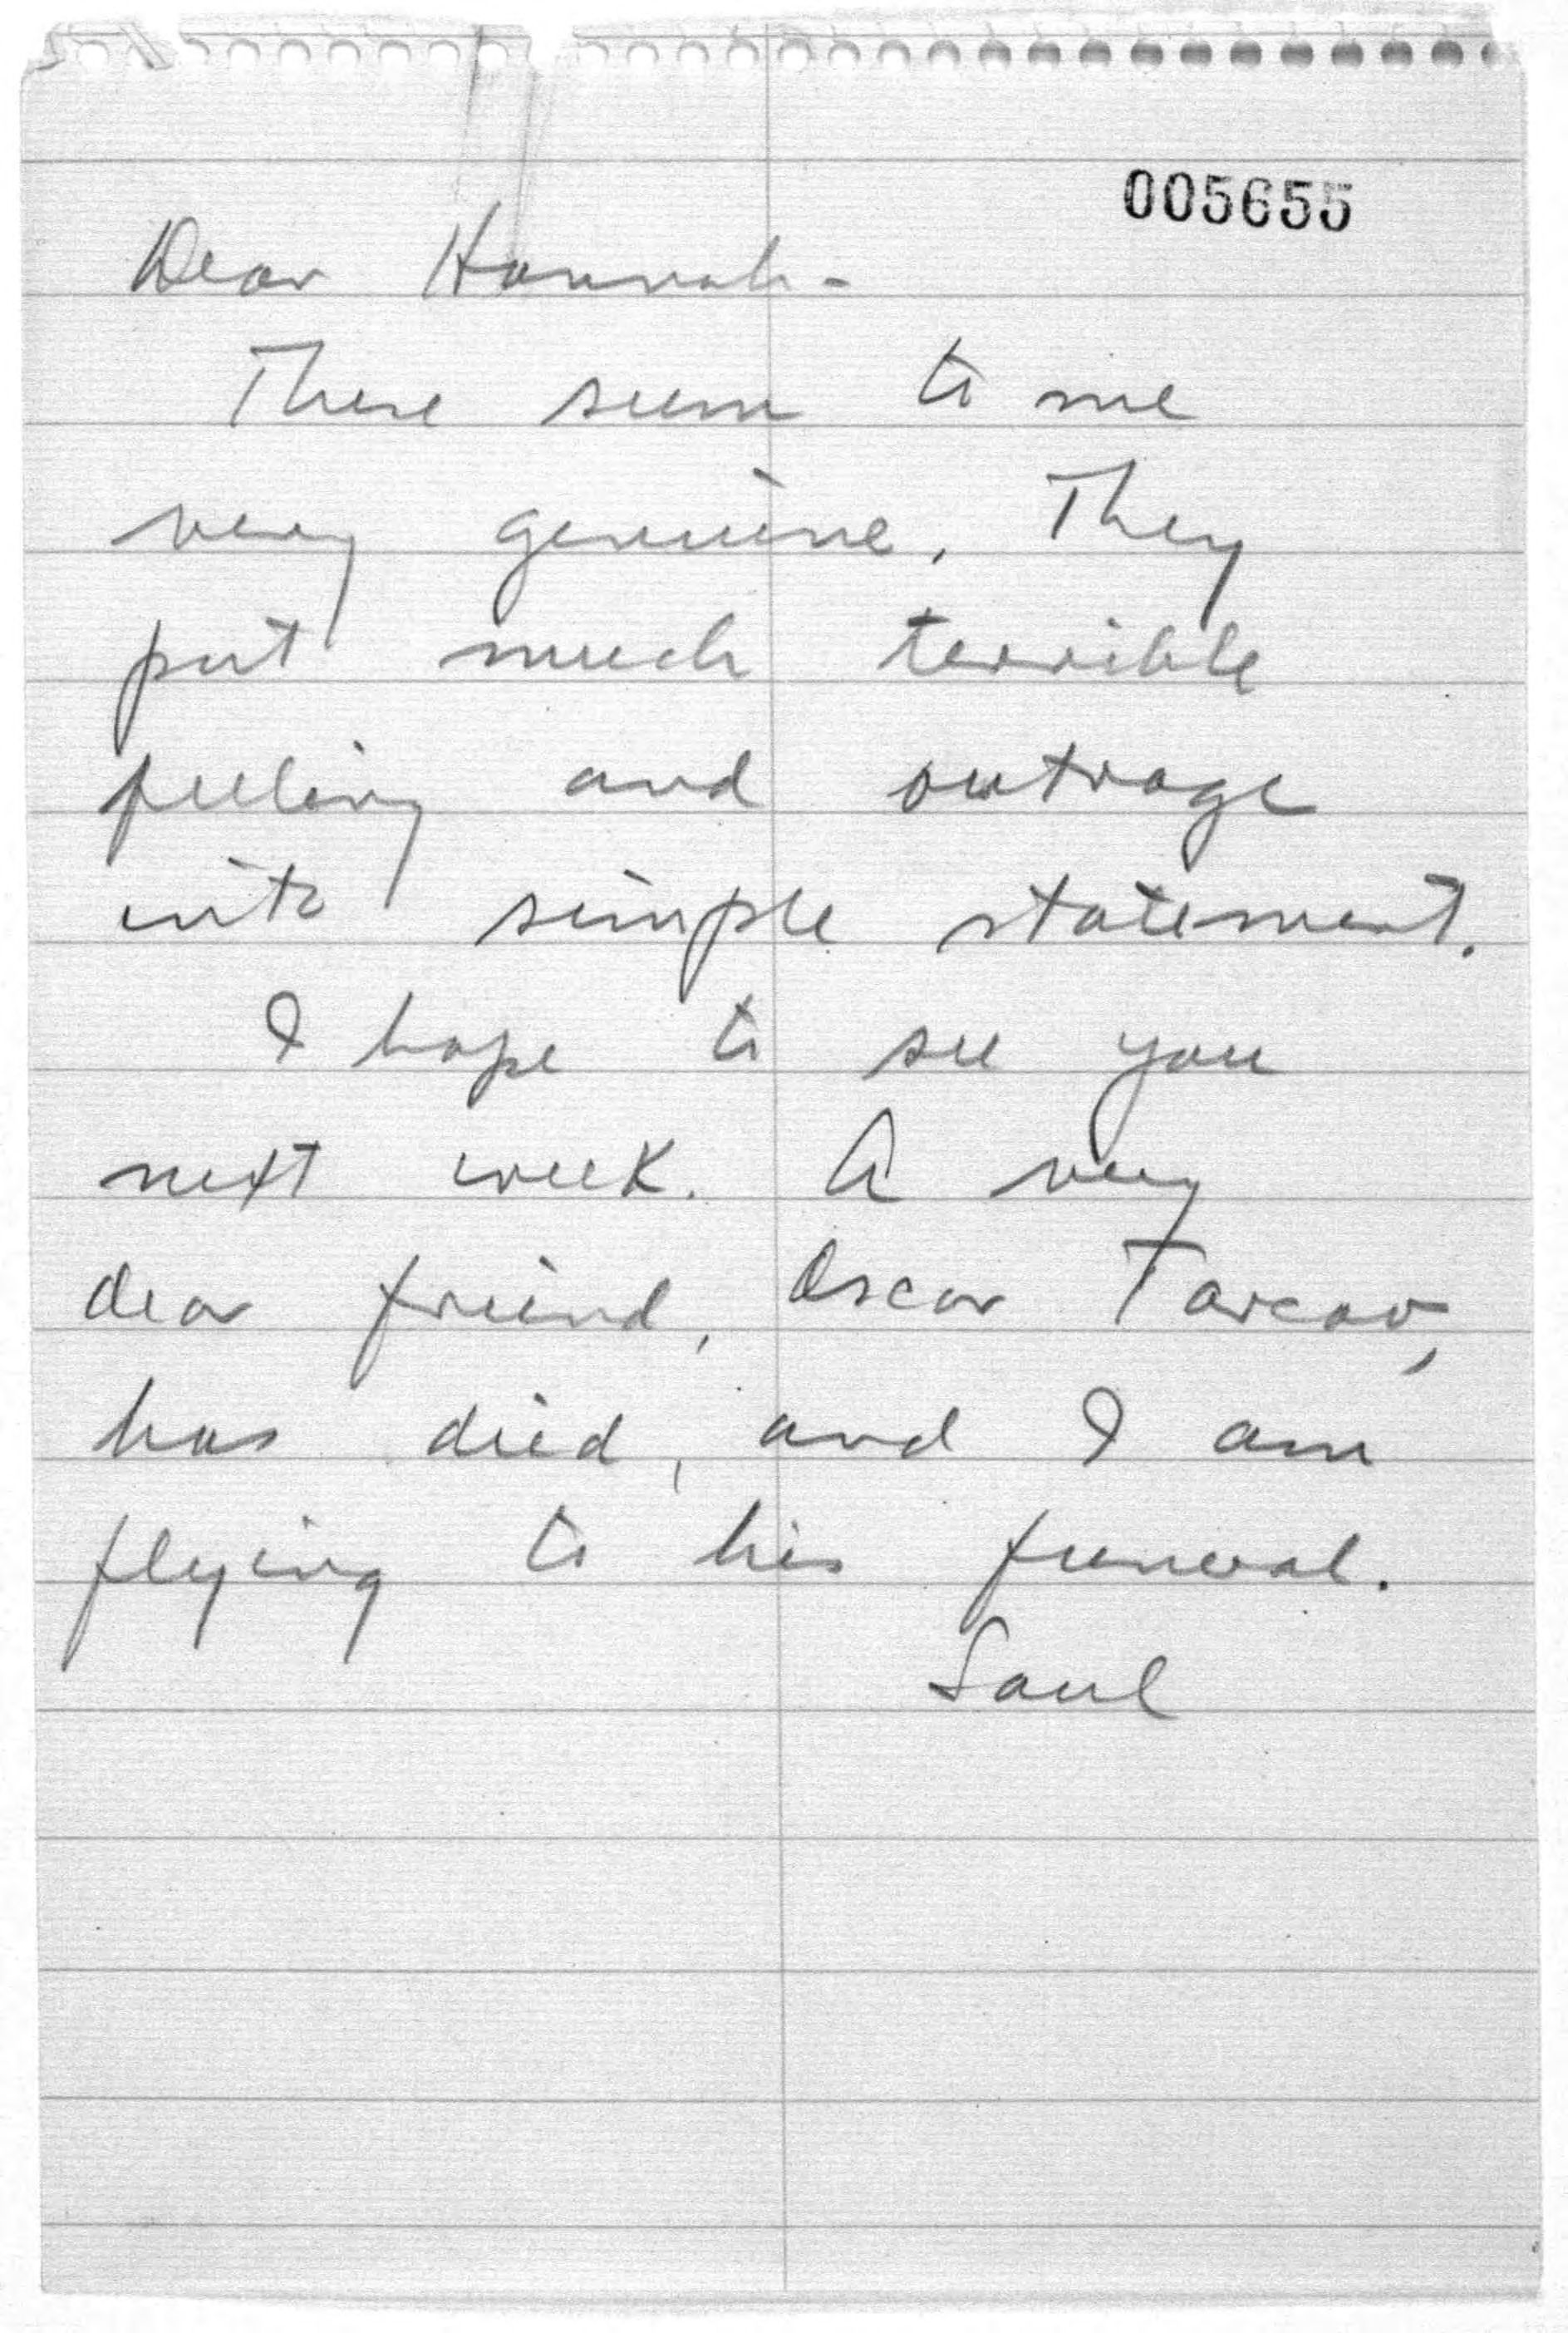 005655
Dear Hannah-
These seem to me
very genuine. They
put much terrible
feeling and outrage
into simple statement.
I hope to see you
next week. A very
dear friend, Oscar Tarcov,
has died, and I am
flying to his funeral.
Saul